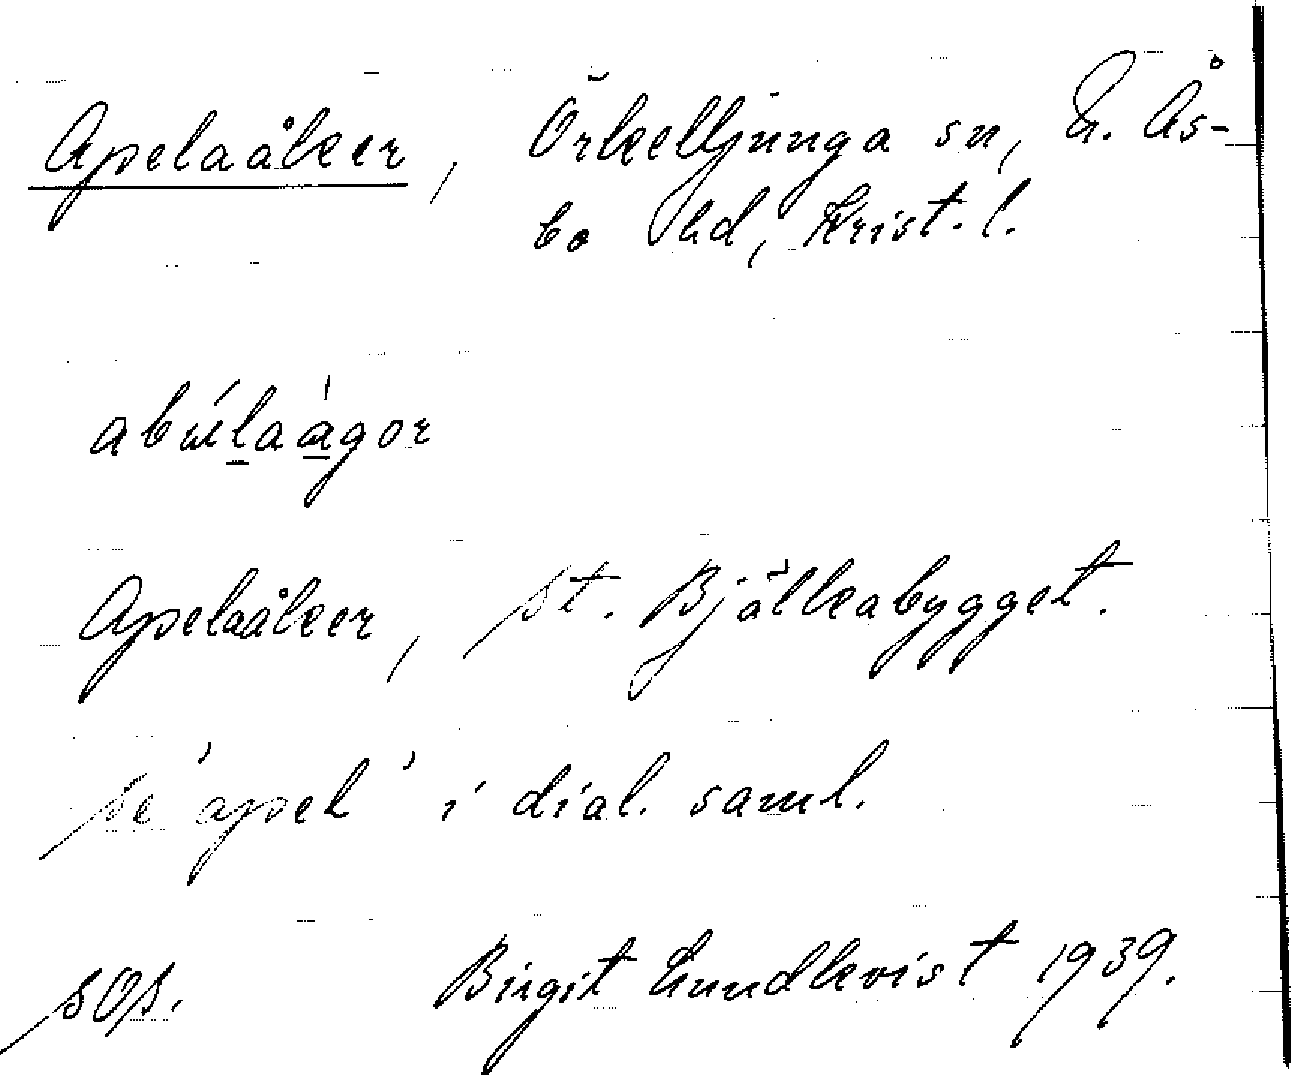 Apelaåker, Örkelljunga sn, N. Ås-
bo hd, Krist. l.
abúlaågor
Apelaåker, st. Bjälkabygget.
se 'apel' i dial. saml.
Birgit Lundkvist 1939.